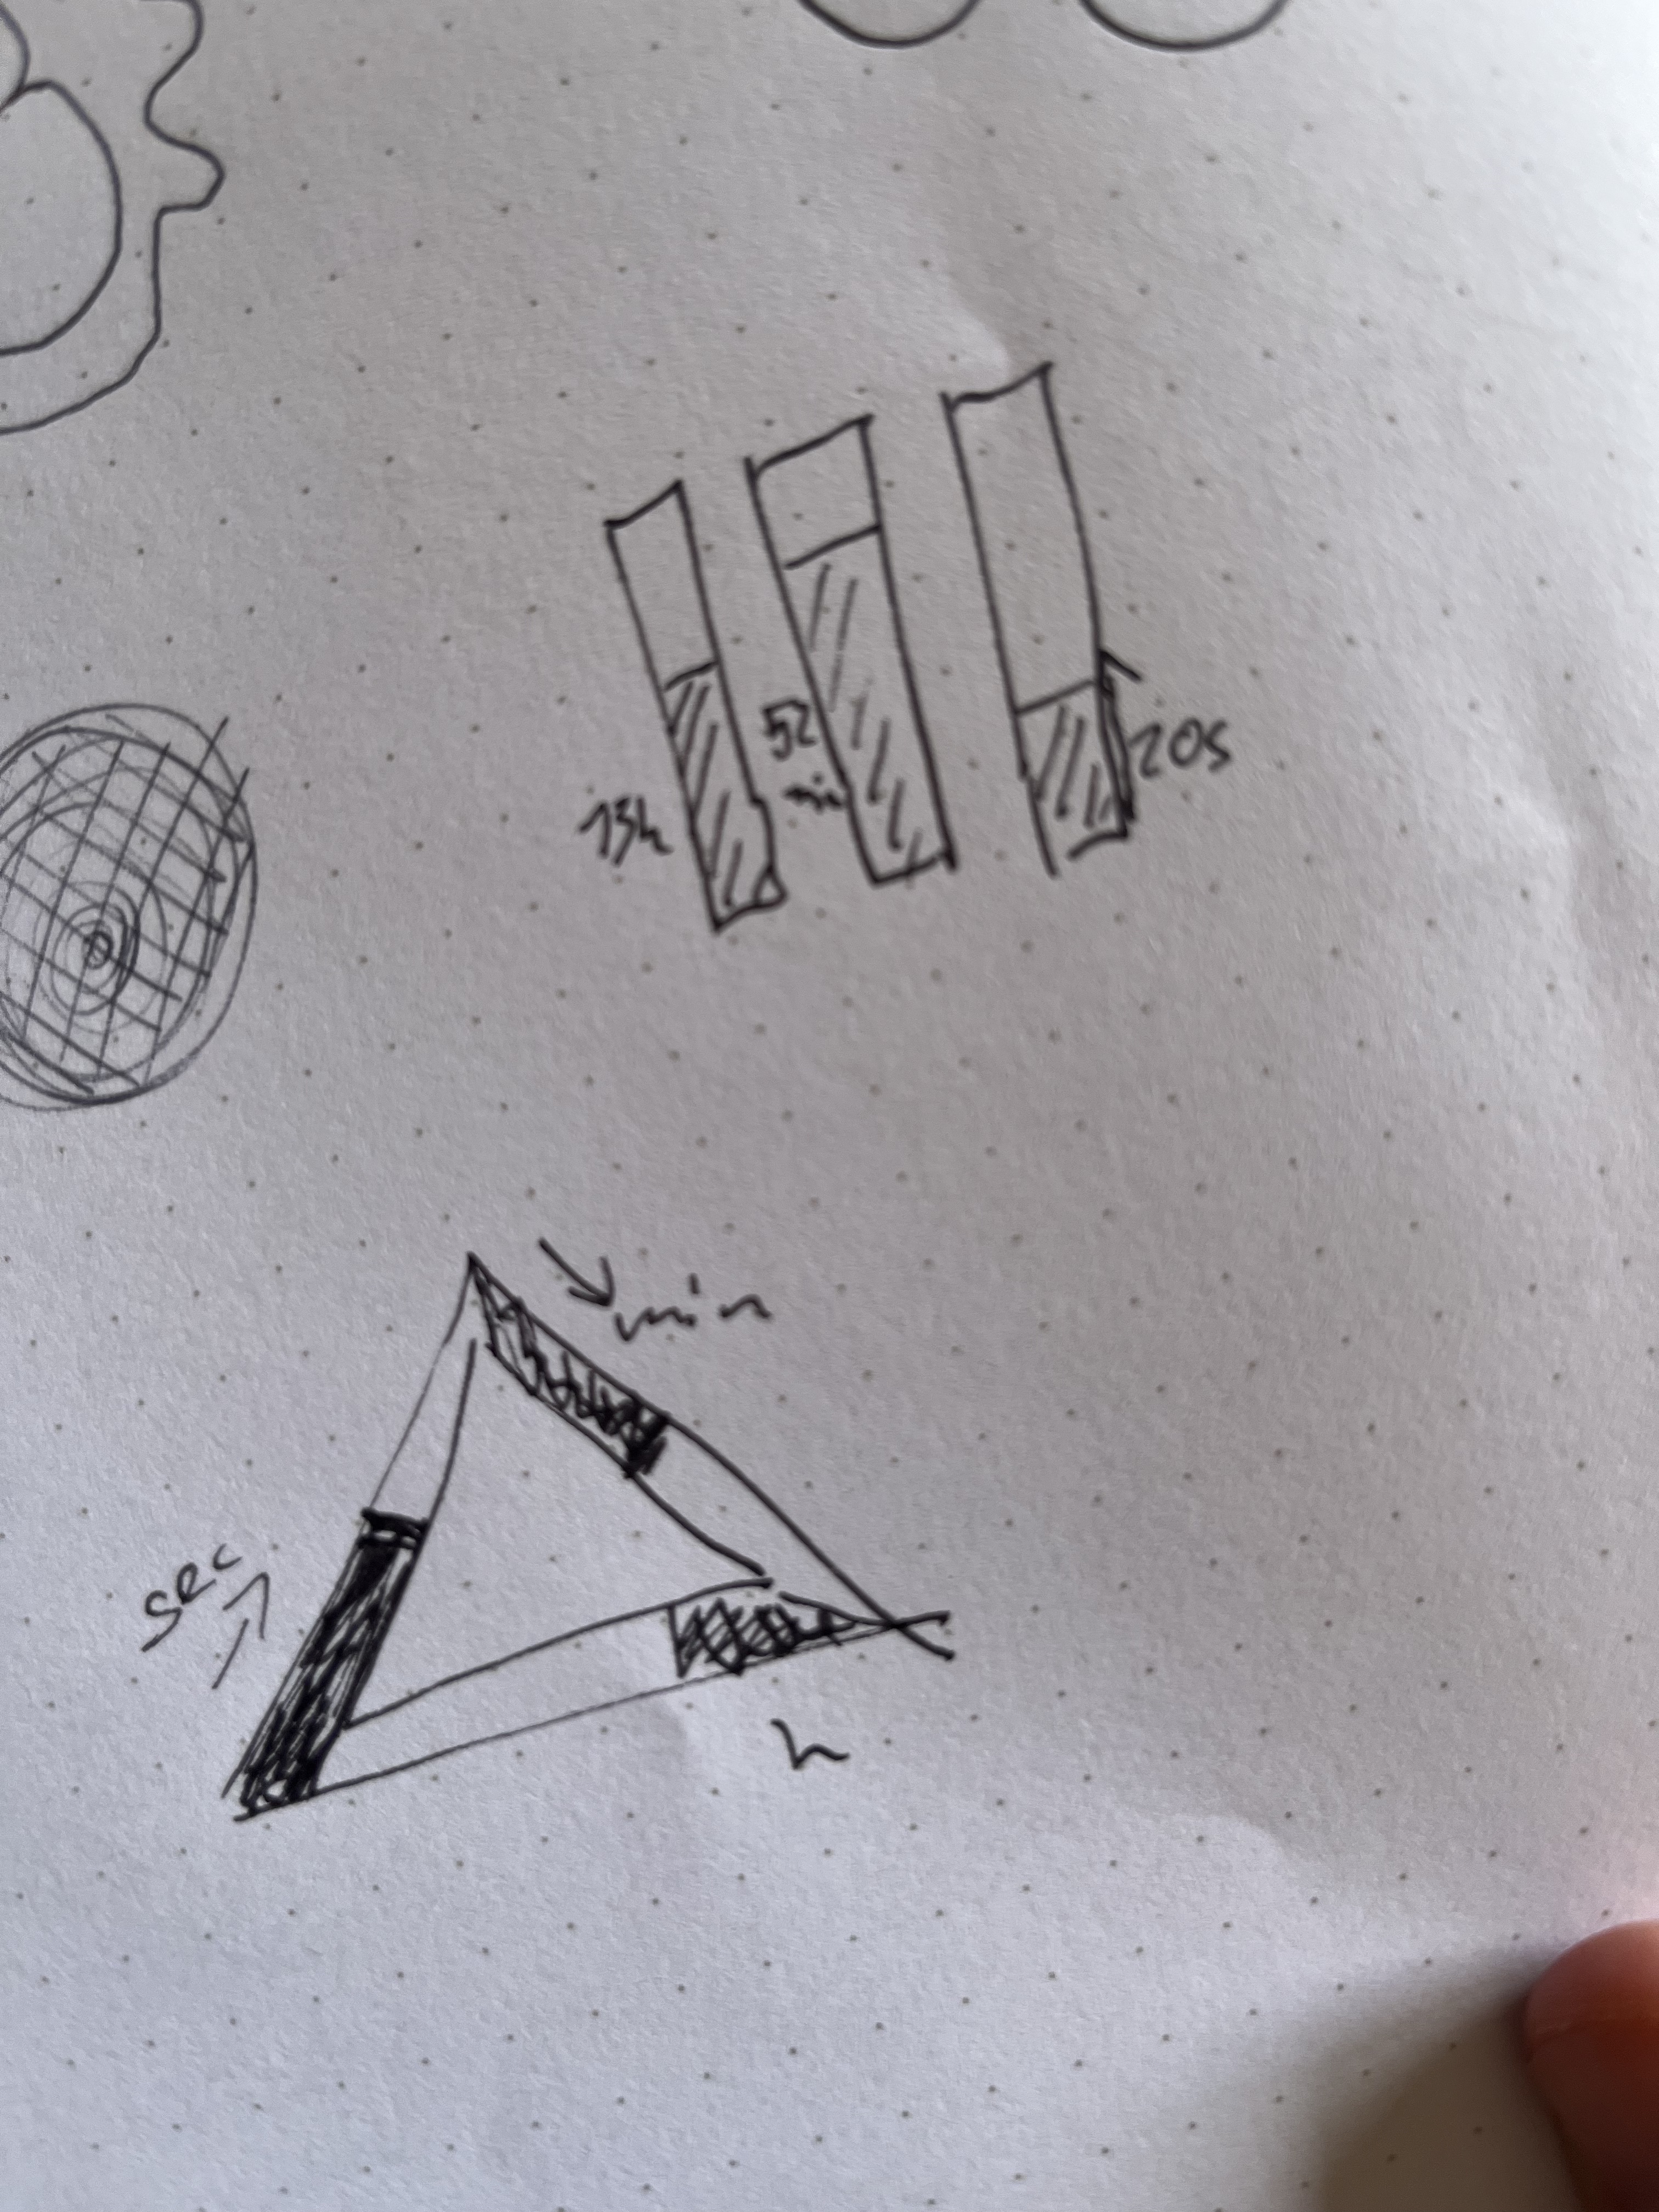 15h
52
min
20s
min
sec
h